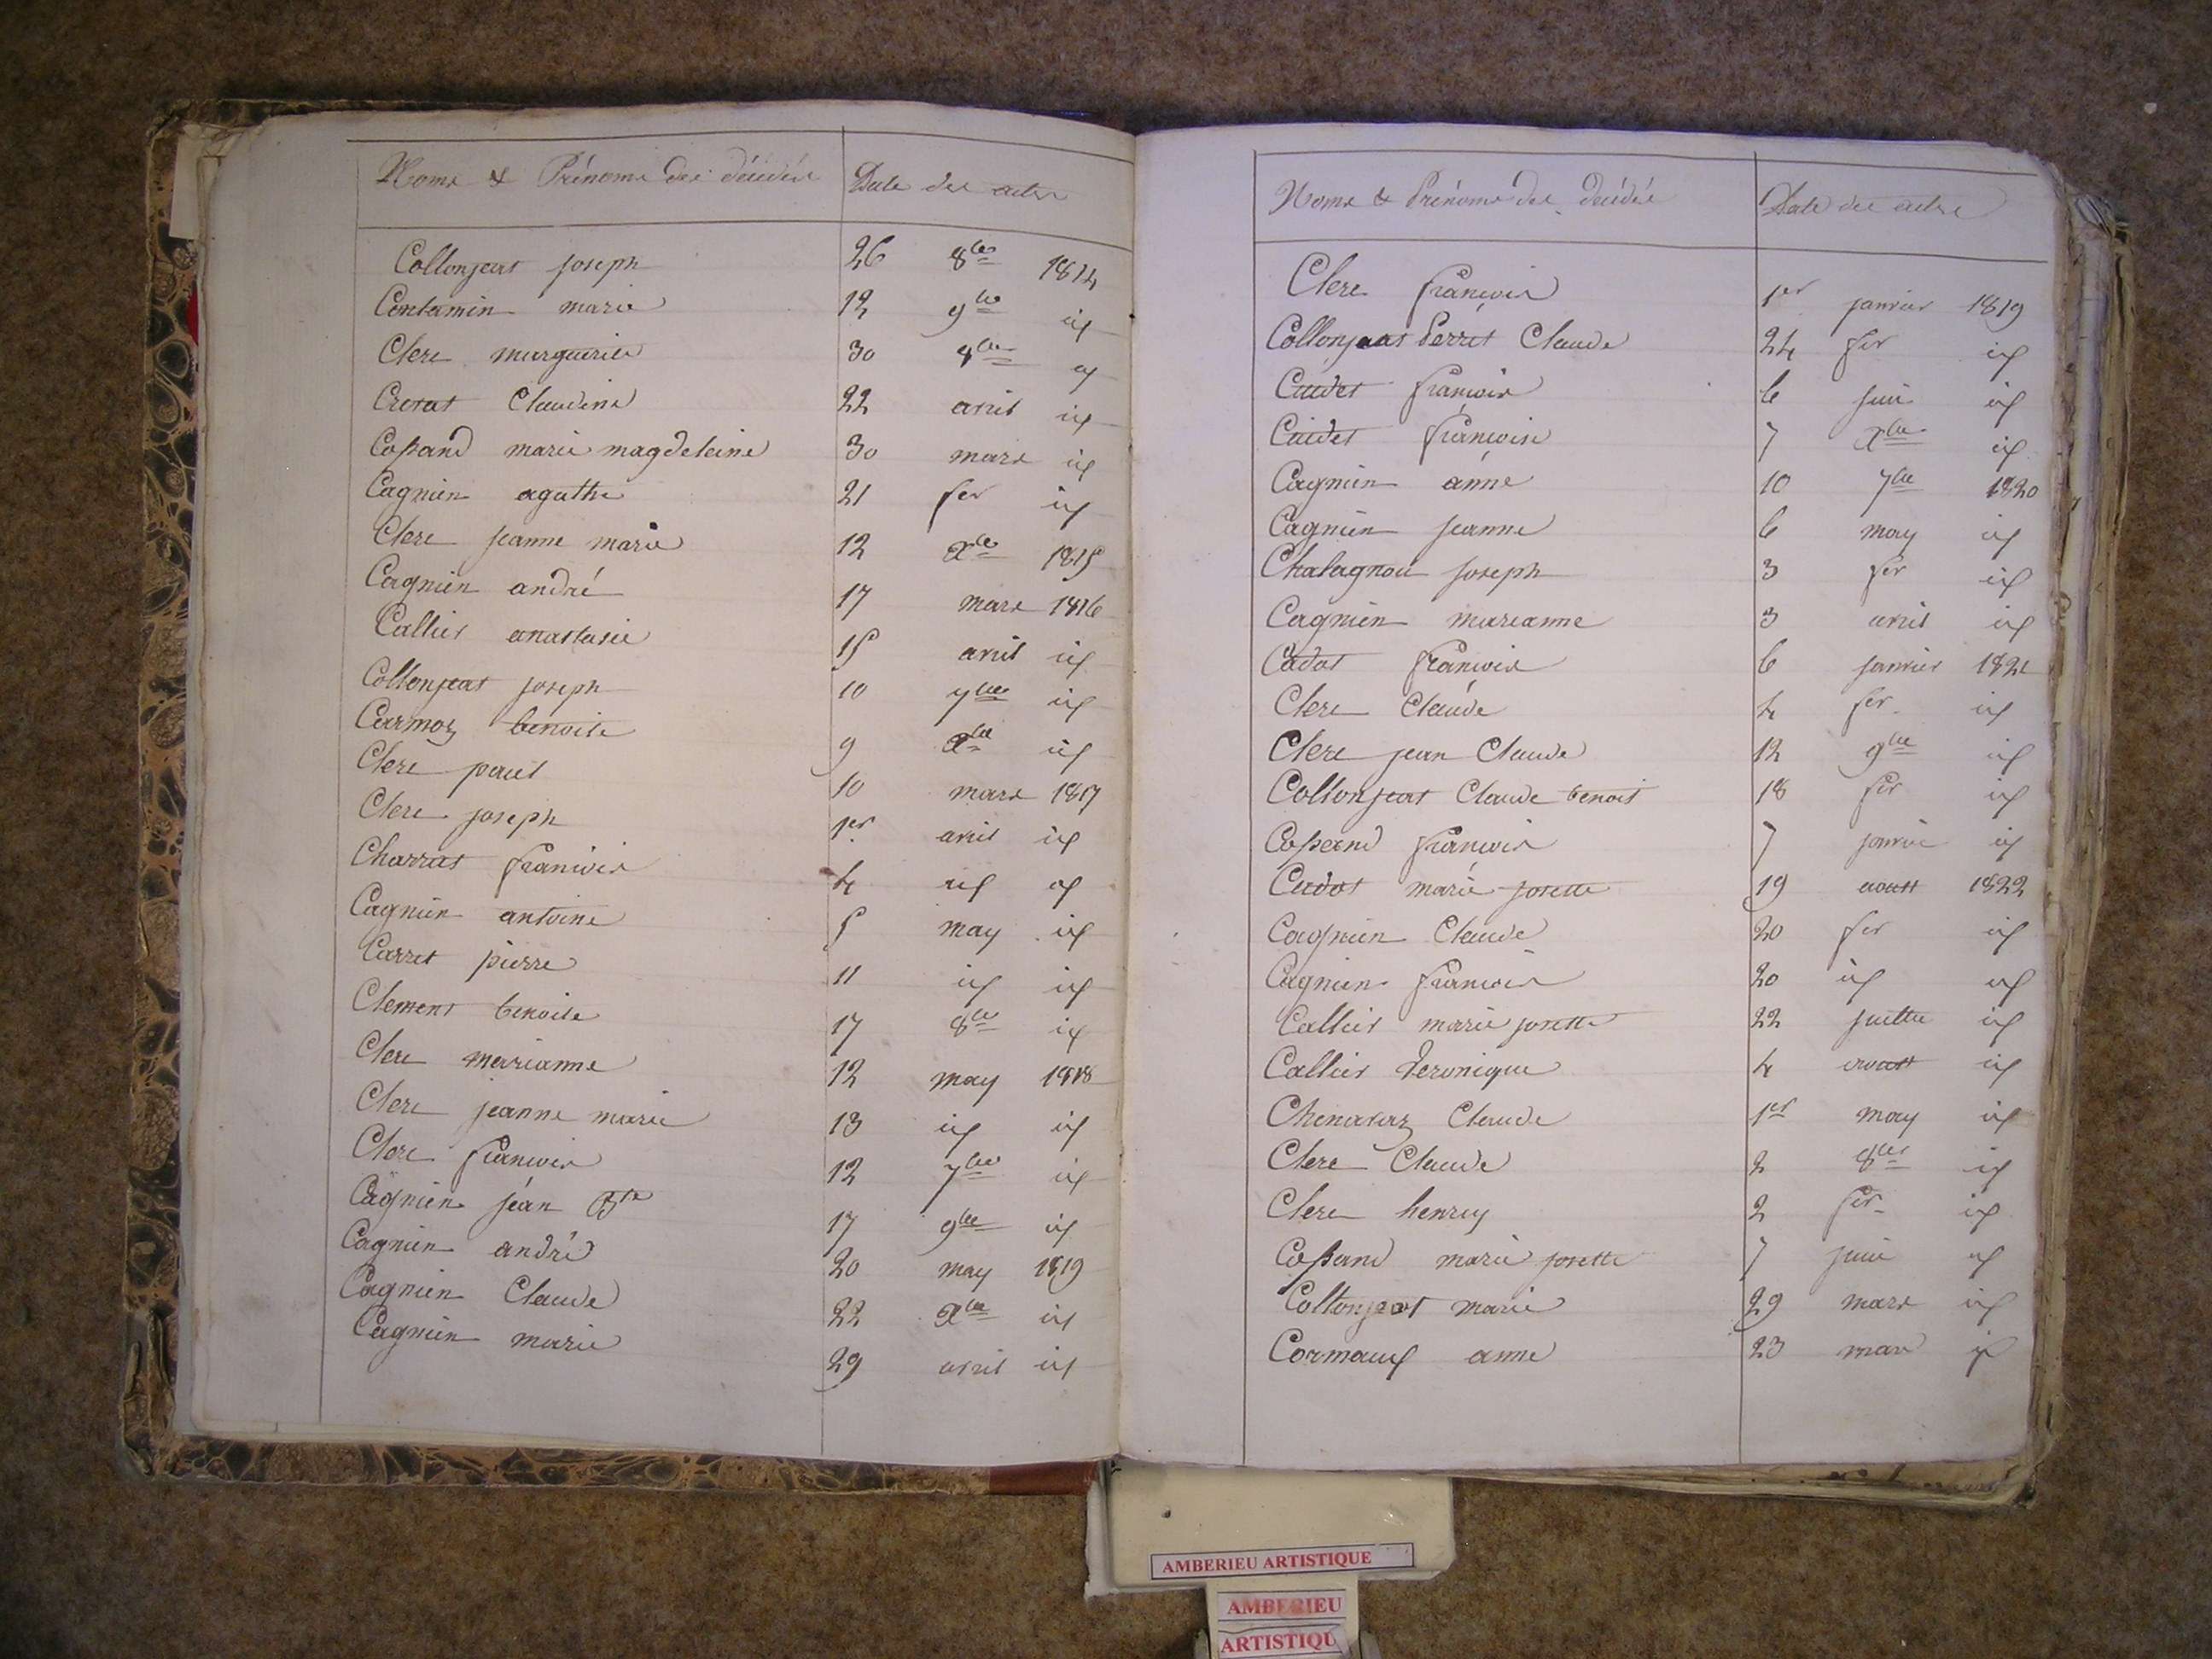 Noms & Prénoms des décédés Date des actes
Collonjeat joseph 26 8bre 1814
Contamin marie 12 9bre id
Clerc marguerite 30 id
Crotat Claudine 22 avril id
Cossand marie magdeleine 30 mars id
Cagnin agathe 21 fer id
Clerc jeanne marie 12 Xbre 1815
Cagnin andré 17 mars 1816
Callier anastasie 15 avril id
Collonjeat joseph 10 7bre id
Carmoz benoite 9 Xbre id
Clerc paul 10 mars 1817
Clerc joseph 1er avril id
Charrat francois 4 id id
Cagnin antoine 5 may id
Carret pierre 11 id id
Clement benoite 17 8bre id
Clerc marianne 12 may 1818
Clerc jeanne marie 13 id id
Clerc francois 12 7bre id
Cagnin jean Bte 17 9bre id
Cagnin andré 20 may 1819
Cagnin Claude 22 Xbre id
Cagnin marie 29 avril id
Noms & Prénoms des décédés Date des actes
Clerc françois 1er janvier 1819
Collonjeat Perret Claude 24 fer id
Caudet françois 6 juin id
Caudet françoise 7 Xbre id
Cagnin anne 10 7bre 1820
Cagnin jeanne 6 may id
Chalagnou joseph 3 fer id
Cagnin marianne 3 avril id
Cadot françois 6 janvier 1821
Clerc Claude 4 fer id
Clerc jean Claude 12 9bre id
Collonjeat Claude benoit 18 fer id
Cossand françois 7 janvier id
Cadot marie josette 19 aoust 1822
Cagnin Claude 20 fer id
Cagnin francois 20 id id
Callier marie josette 22 juillet id
Callier Veronique 4 aoust id
Chenavaz Claude 1er may id
Clerc Claude 2 8bre id
Clerc henry 2 fer id
Cossand marie josette 7 juin id
Collonjeat marie 29 mars id
anne 23 mars id
AMBERIEU ARTISTIQUE
AMBERIEU
ARTISTIQU